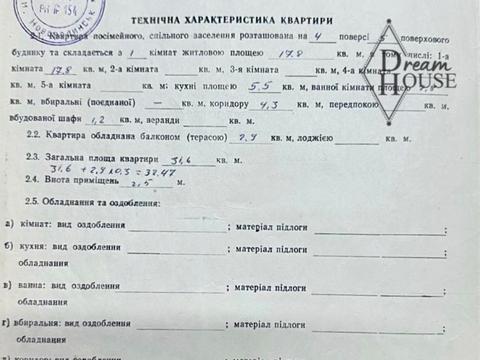 РП № 154
м. Новояворівськ
ТЕХНІЧНА ХАРАКТЕРИСТИКА КВАРТИРИ
2.1. Квартира посімейного, спільного заселення розташована на 4 поверсі 5 поверхового
будинку та складається з 1 кімнат житловою площею 17.8 кв. м, в тому числі: 1-а
кімната 17.8 кв. м, 2-а кімната кв. м, 3-я кімната кв. м, 4-а кімната
кв. м, 5-а кімната кв. м: кухні площею 5.5 кв. м, ванної кімнати площею
кв. м, вбиральні (поєднаної) — кв. м, коридору 4,3 кв. м, передпокою кв. м,
вбудованої шафи 1,2 кв. м, веранди кв. м.
2.2. Квартира обладнана балконом (терасою) 2,9 кв. м, лоджією кв. м.
2.3. Загальна площа квартири 31,6 кв. м.
31,6 + 2,9 х 0,3 = 32.47
2.4. Висота приміщень 2,5 м.
2.5. Обладнання та оздоблення:
а) кімнат: вид оздоблення ; матеріал підлоги ;
б) кухня: вид оздоблення ; матеріал підлоги ;
обладнання
в) ванна: вид оздоблення ; матеріал підлоги ;
обладнання
г) вбиральня: вид оздоблення ; матеріал підлоги ;
обладнання
Dream
HOUSE